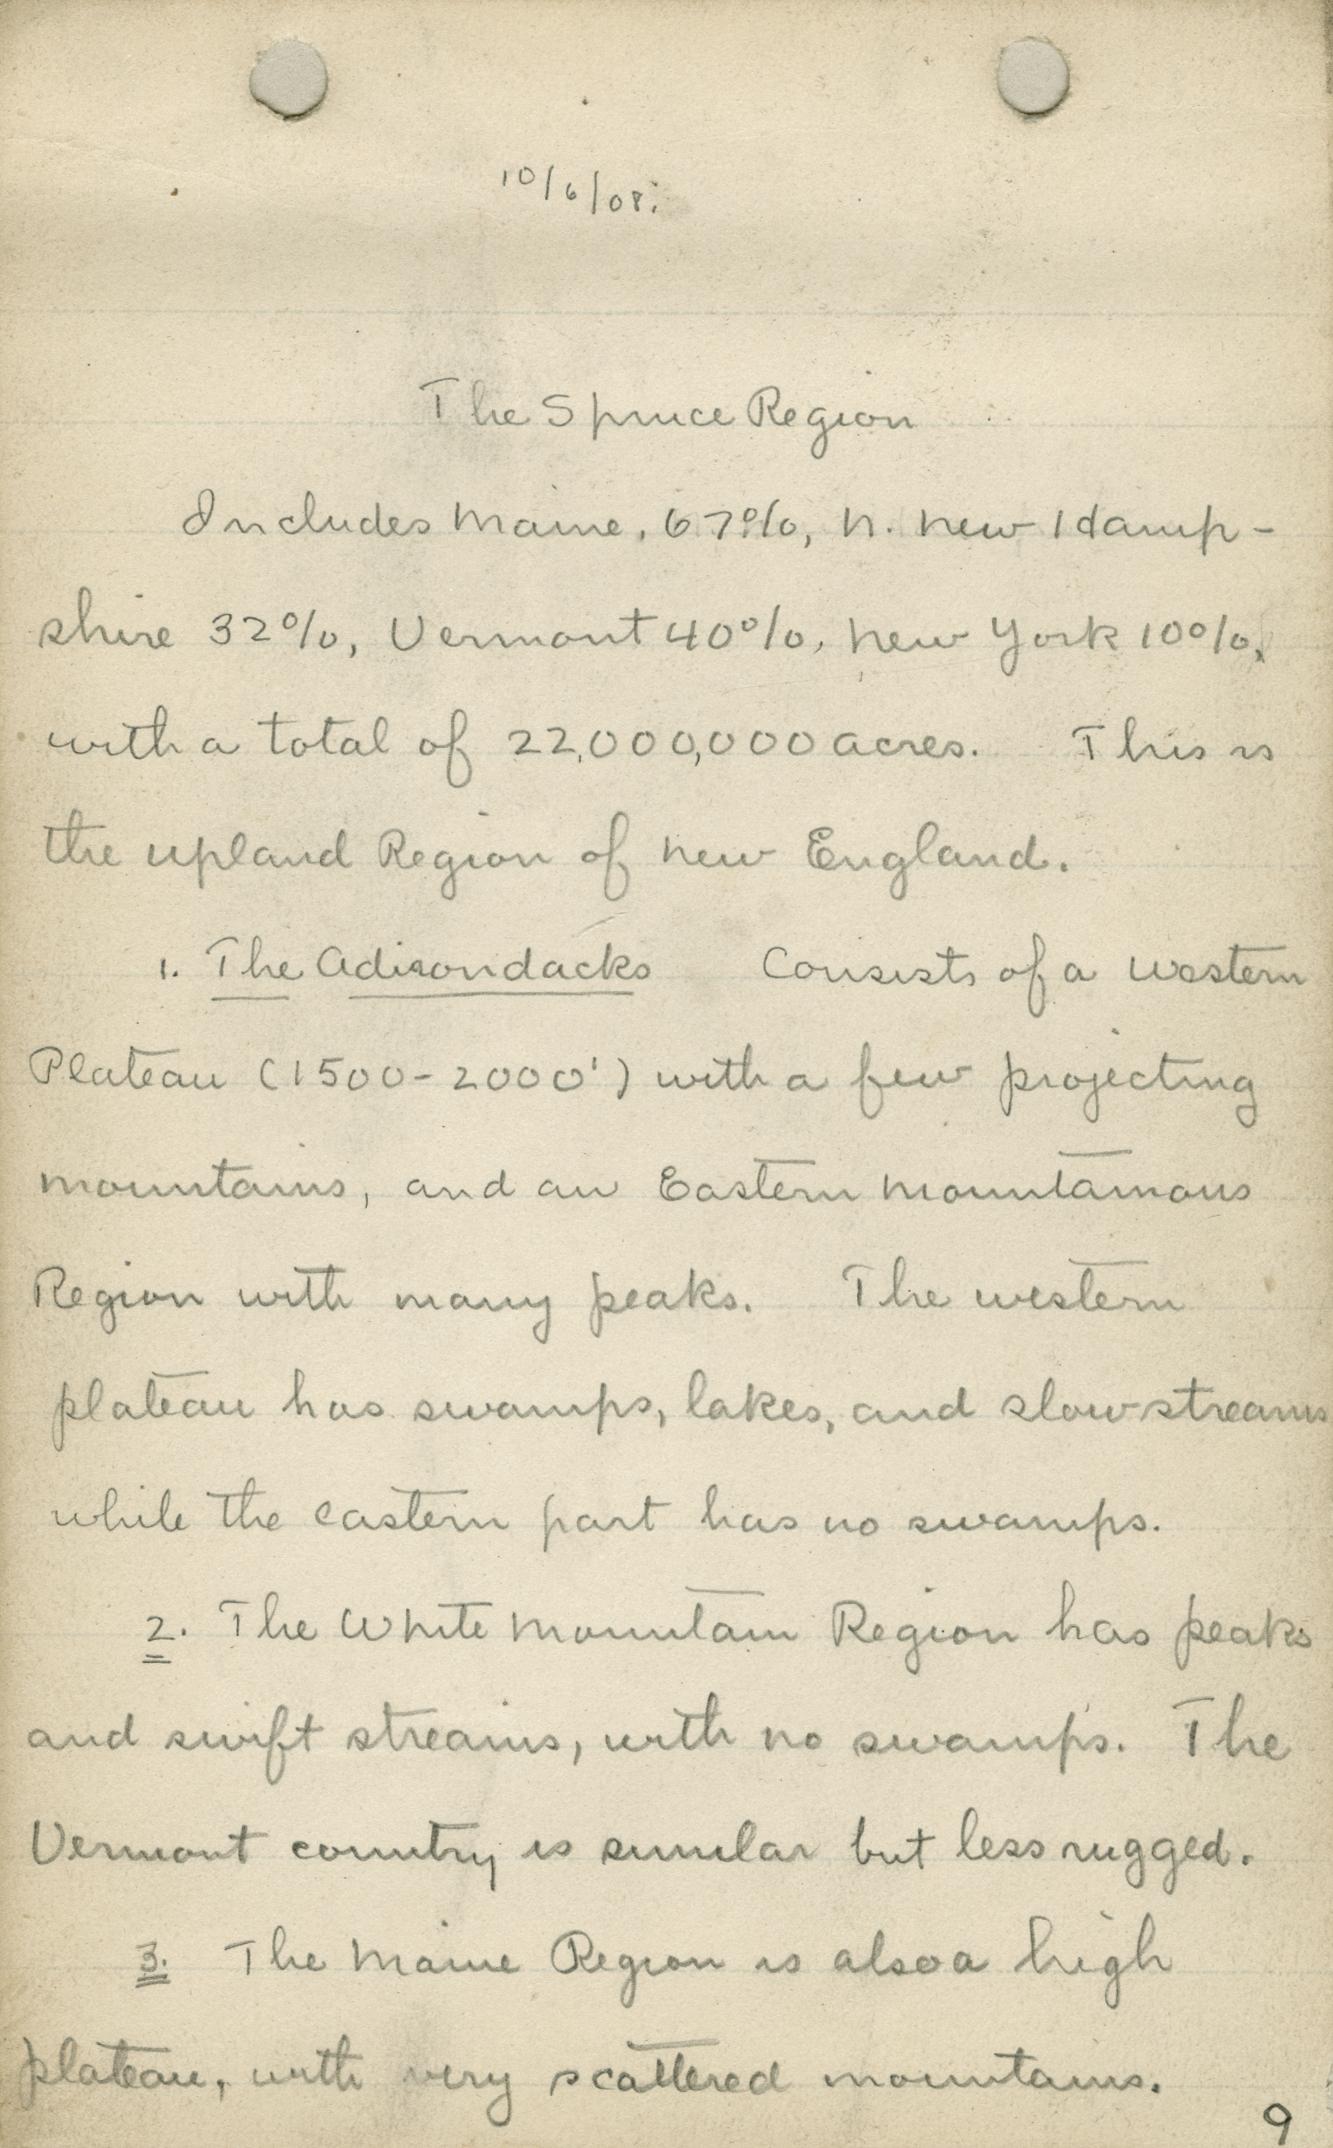 10/6/08.
The Spruce Region
Includes Maine, 67%, N. New Hamp-
shire 32%, Vermont 40%, New York 10%,
with a total of 22,000,000 acres. This is
the upland Region of New England.
1. The Adirondacks Consists of a western
Plateau (1500-2000') with a few projecting
mountains, and an Eastern mountainous
Region with many peaks. The western
plateau has swamps, lakes, and slow streams
while the eastern part has no swamps.
2. The White Mountain Region has peaks
and swift streams, with no swamps. The
Vermont country is similar but less rugged.
3. The Maine Region is also a high
plateau, with very scattered mountains.
9